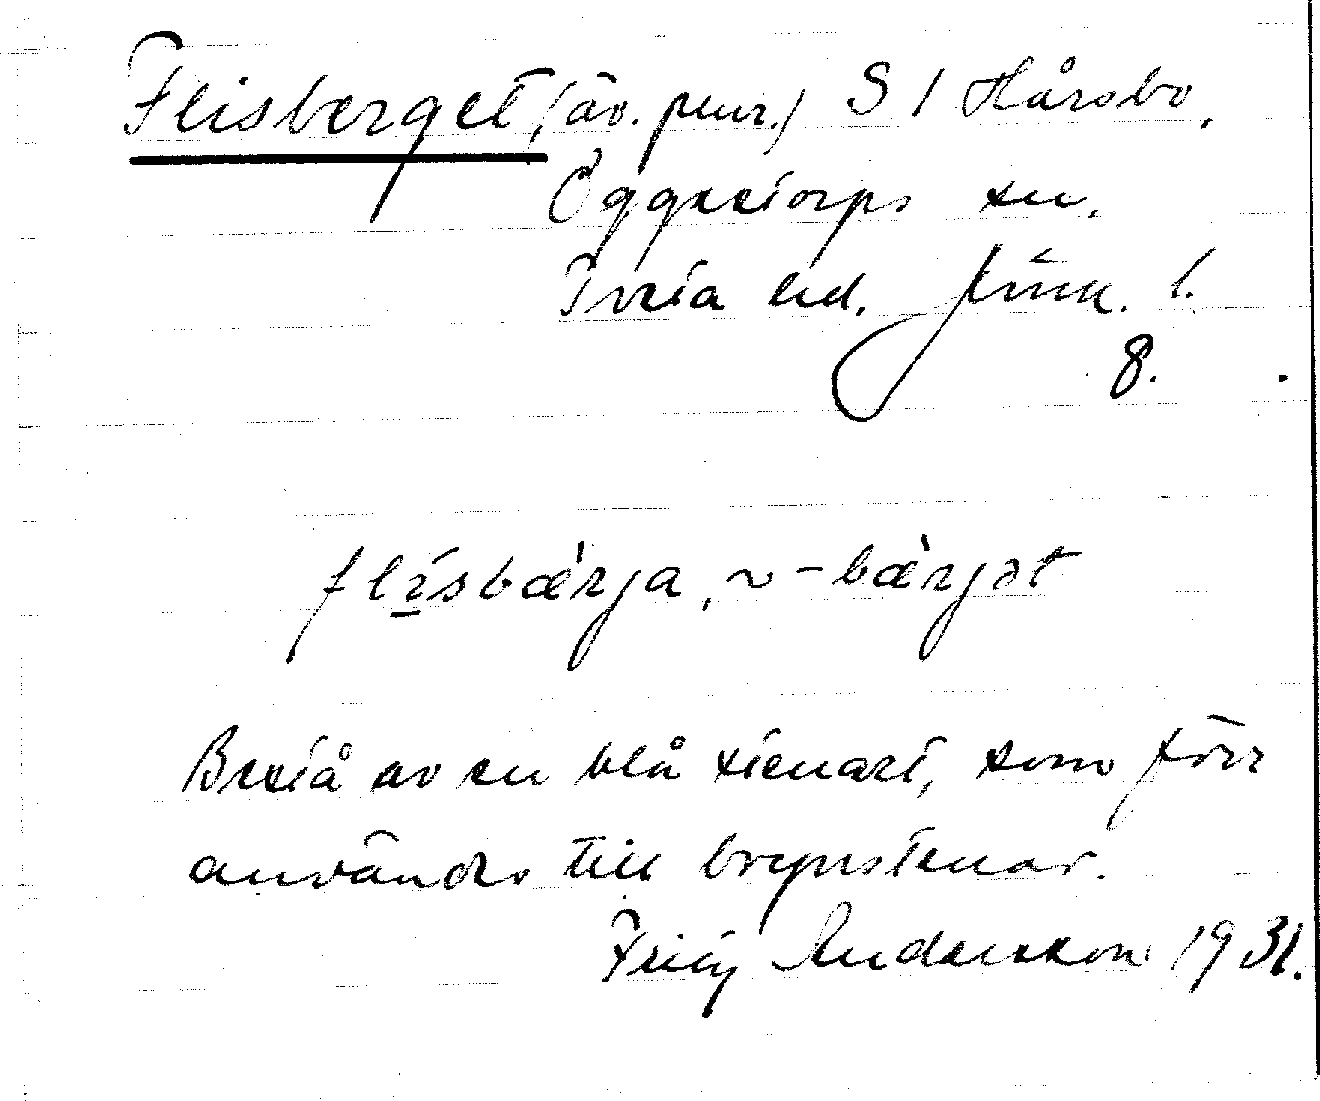 Flisberget, (äv. plur.) S 1 Hårsbo,
Öggestorps sn.
Tveta hd. Jönk. l.
8.
flɩ́sbæ̀rja, ~ -bæ̀rjət
Bestå av en blå stenart, som förr
användes till brynstenar.
Fritz Andersson 1931.